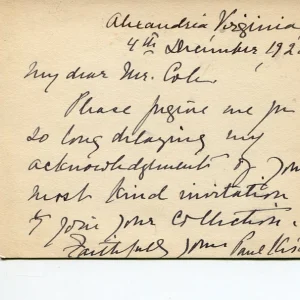 Alexandria Virginia
4th December, 192
My dear Mr. Cole
Please forgive me for
so long delaying my
acknowledgments of your
most kind invitation
to join your collection.
Faithfully yours Paul